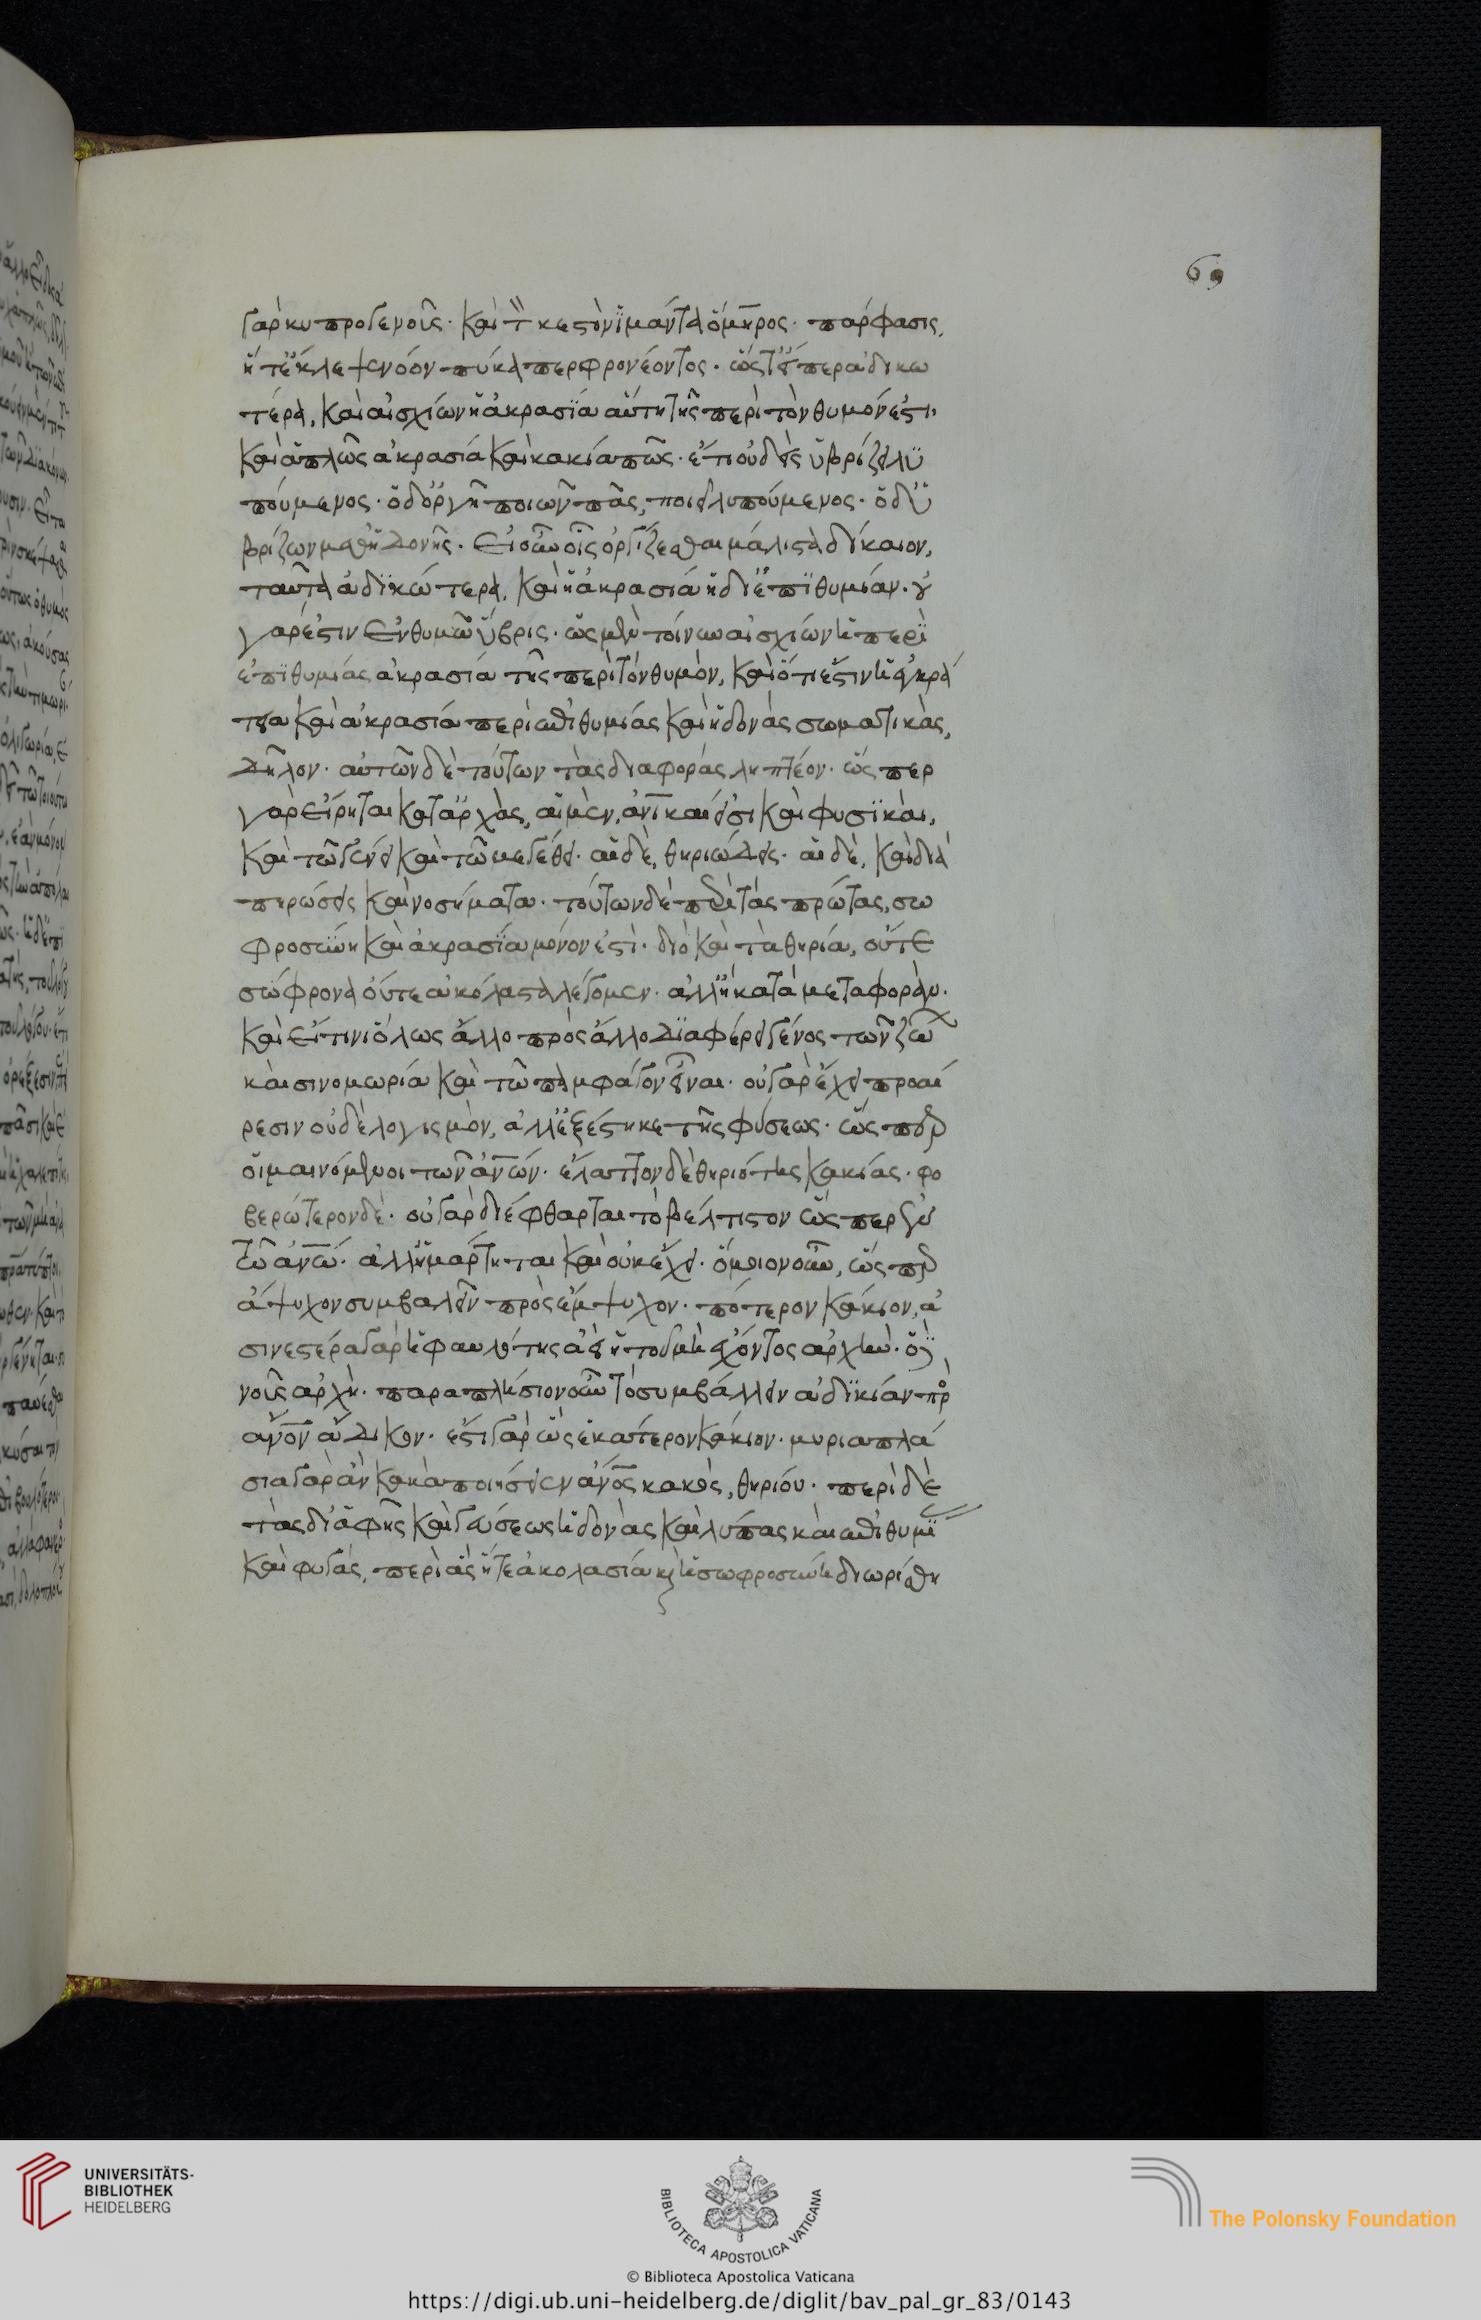 69
γὰρ κυπρογενοῦς· καὶ τ̀ κεστὸν ἱμάντα ὅμηρος· πάρφασις,
ἥ τ' ἔκλεψε νόον πύκα περ φρονέοντος· ὥστ' εἴπερ ἀδικω
τέρα, καὶ αἰσχίων ἡ ἀκρασία αὕτη τῆς περὶ τὸν θυμόν ἐστι
καὶ ἁπλῶς ἀκρασία καὶ κακία πως· ἔτι οὐδεὶς ὑβρίζει λυ
πούμενος· ὁ δ' ὀργῇ ποιῶν πᾶς, ποιεῖ λυπούμενος· ὁ δ' ὑ
βρίζων μεθ' ἡδονῆς· εἰ οὖν οἷς ὀργίζεσθαι μάλιστα δίκαιον,
ταῦτα ἀδικώτερα, καὶ ἡ ἀκρασία ἡ δι' ἐπιθυμίαν· οὐ
γάρ ἐστιν ἐν θυμῶ ὕβρις· ὡς μὲν τοίνυν αἰσχίων ἡ περὶ
ἐπιθυμίας ἀκρασία τῆς περὶ τὸν θυμόν, καὶ ὅτι ἔστιν ἡ ἐγκρά
τεια καὶ ἀκρασία περὶ ἐπιθυμίας καὶ ἡδονὰς σωματικὰς,
δῆλον· αὐτῶν δὲ τούτων τὰς διαφορὰς ληπτέον· ὥσπερ
γὰρ εἴρηται κατ' ἀρχὰς, αἱ μὲν, ἀν̅ικαί εἰσι καὶ φυσικαὶ,
καὶ τῶ γένει καὶ τῶ μεγέθει· αἱ δὲ, θηριώδεις· αἱ δὲ, καὶ διὰ
πηρώσεις καὶ νοσήματα· τούτων δὲ περὶ τὰς πρώτας, σω
φροσύνη καὶ ἀκρασία μόνον ἐστὶ· διὸ καὶ τὰ θηρία, οὔτε
σώφρονα οὔτε ἀκόλαστα λέγομεν· ἀλλ' ἢ κατὰ μεταφορὰν·
καὶ εἴ τινι ὅλως ἄλλο πρὸς ἄλλο διαφέρει γένος τῶν ζώων
καὶ σινομωρία καὶ τῶ παμφάγον εἶναι· οὐ γὰρ ἔχει προαί
ρεσιν οὐδὲ λογισμὸν, ἀλλ' ἐξέστηκε τῆς φύσεως· ὥσπερ
οἱ μαινόμενοι τῶν ἀν̅ων· ἔλαττον δὲ θηριότης κακίας· φο
βερώτερον δὲ· οὐ γὰρ διέφθαρται τὸ βέλτιστον ὥσπερ ἐν
τῶ ἀν̅ω· ἀλλ' ἡμάρτηται καὶ οὐκ ἔχει· ὅμοιον οὖν, ὥσπερ
ἄψυχον συμβαλεῖν πρὸς ἔμψυχον· πότερον κάκιον, ἀ
σινεστέρα γὰρ ἡ φαυλότης ἀεὶ ἡ τοῦ μὴ ἔχοντος ἀρχὴν· ὁ δὲ
νοῦς ἀρχὴ· παραπλήσιον οὖν τὸ συμβάλλειν ἀδικίαν πρὸς
ἀν̅ον ἄδικον· ἔστι γὰρ ὡς ἑκάτερον κάκιον· μυριαπλά
σια γὰρ ἂν κακὰ ποιήσειεν ἀν̅ος κακὸς, θηρίου· περὶ δὲ
τὰς δι' ἁφῆς καὶ γεύσεως ἡδονὰς καὶ λύπας καὶ ἐπιθυμί
καὶ φυγάς, περὶ ἃς ἥ τε ἀκολασία καὶ ἡ σωφροσύνη διωρίσθη
UNIVERSITÄTS-
BIBLIOTHEK
HEIDELBERG
BIBLIOTECA APOSTOLICA VATICANA
© Biblioteca Apostolica Vaticana
The Polonsky Foundation
https://digi.ub.uni-heidelberg.de/diglit/bav_pal_gr_83/0143